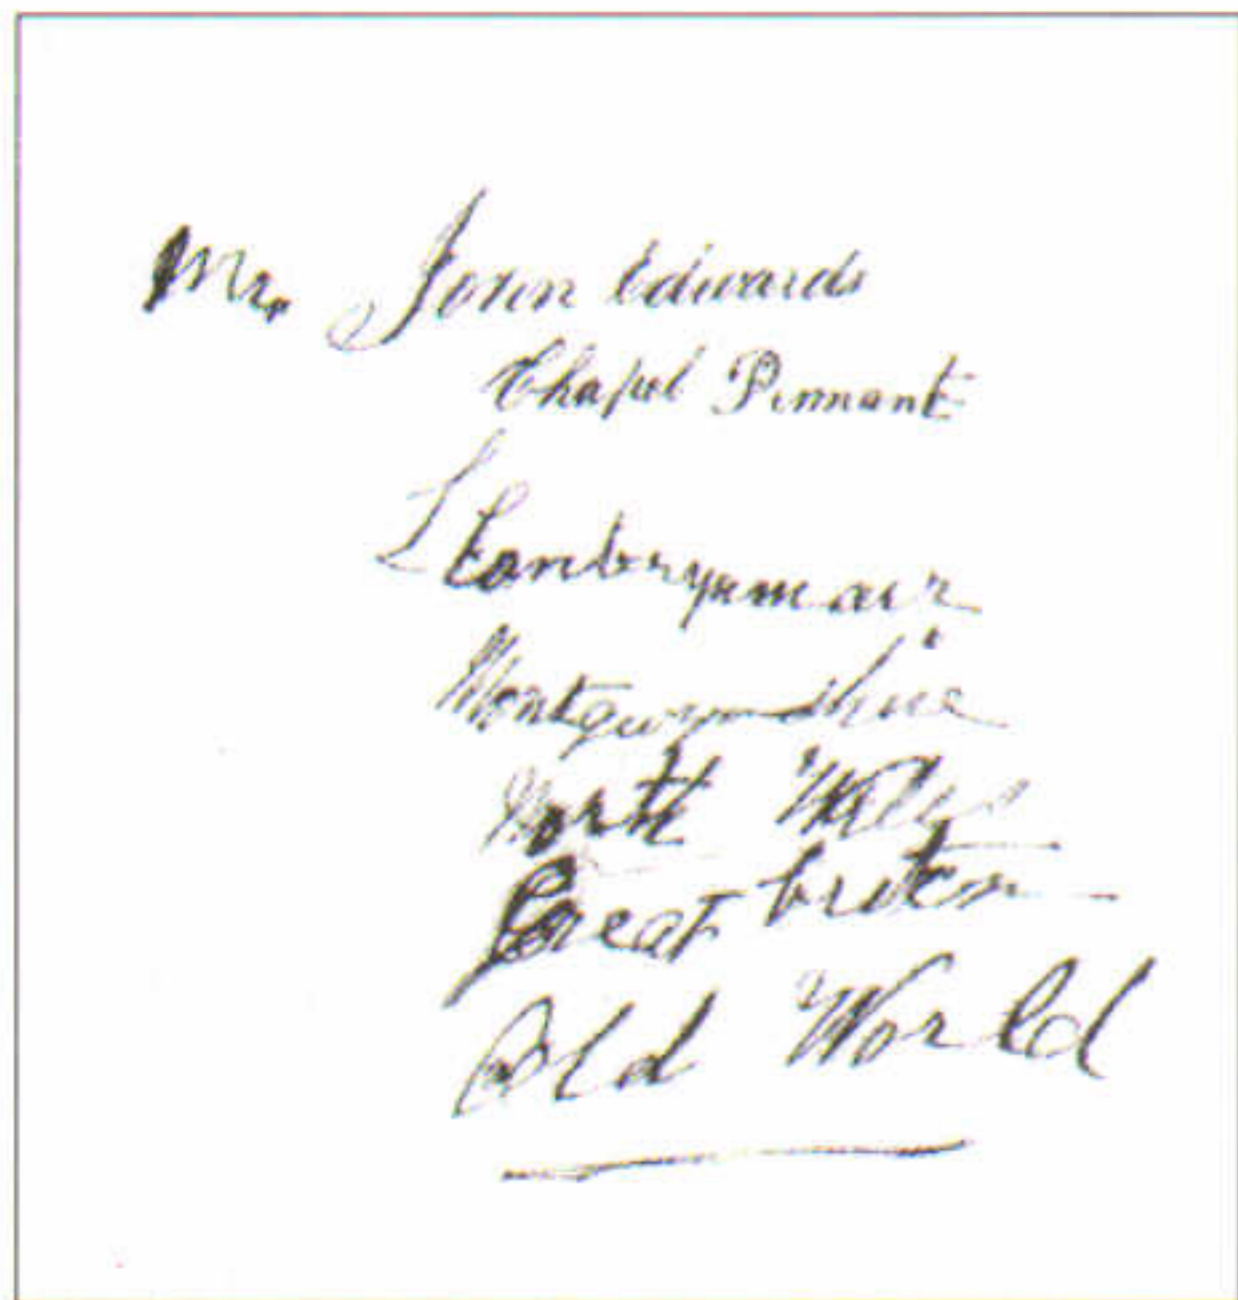 Mr. John Edwards
Chapel Pennant
Llanbrynmair
Montgomeryshire
North Wales
Great briten
Old World